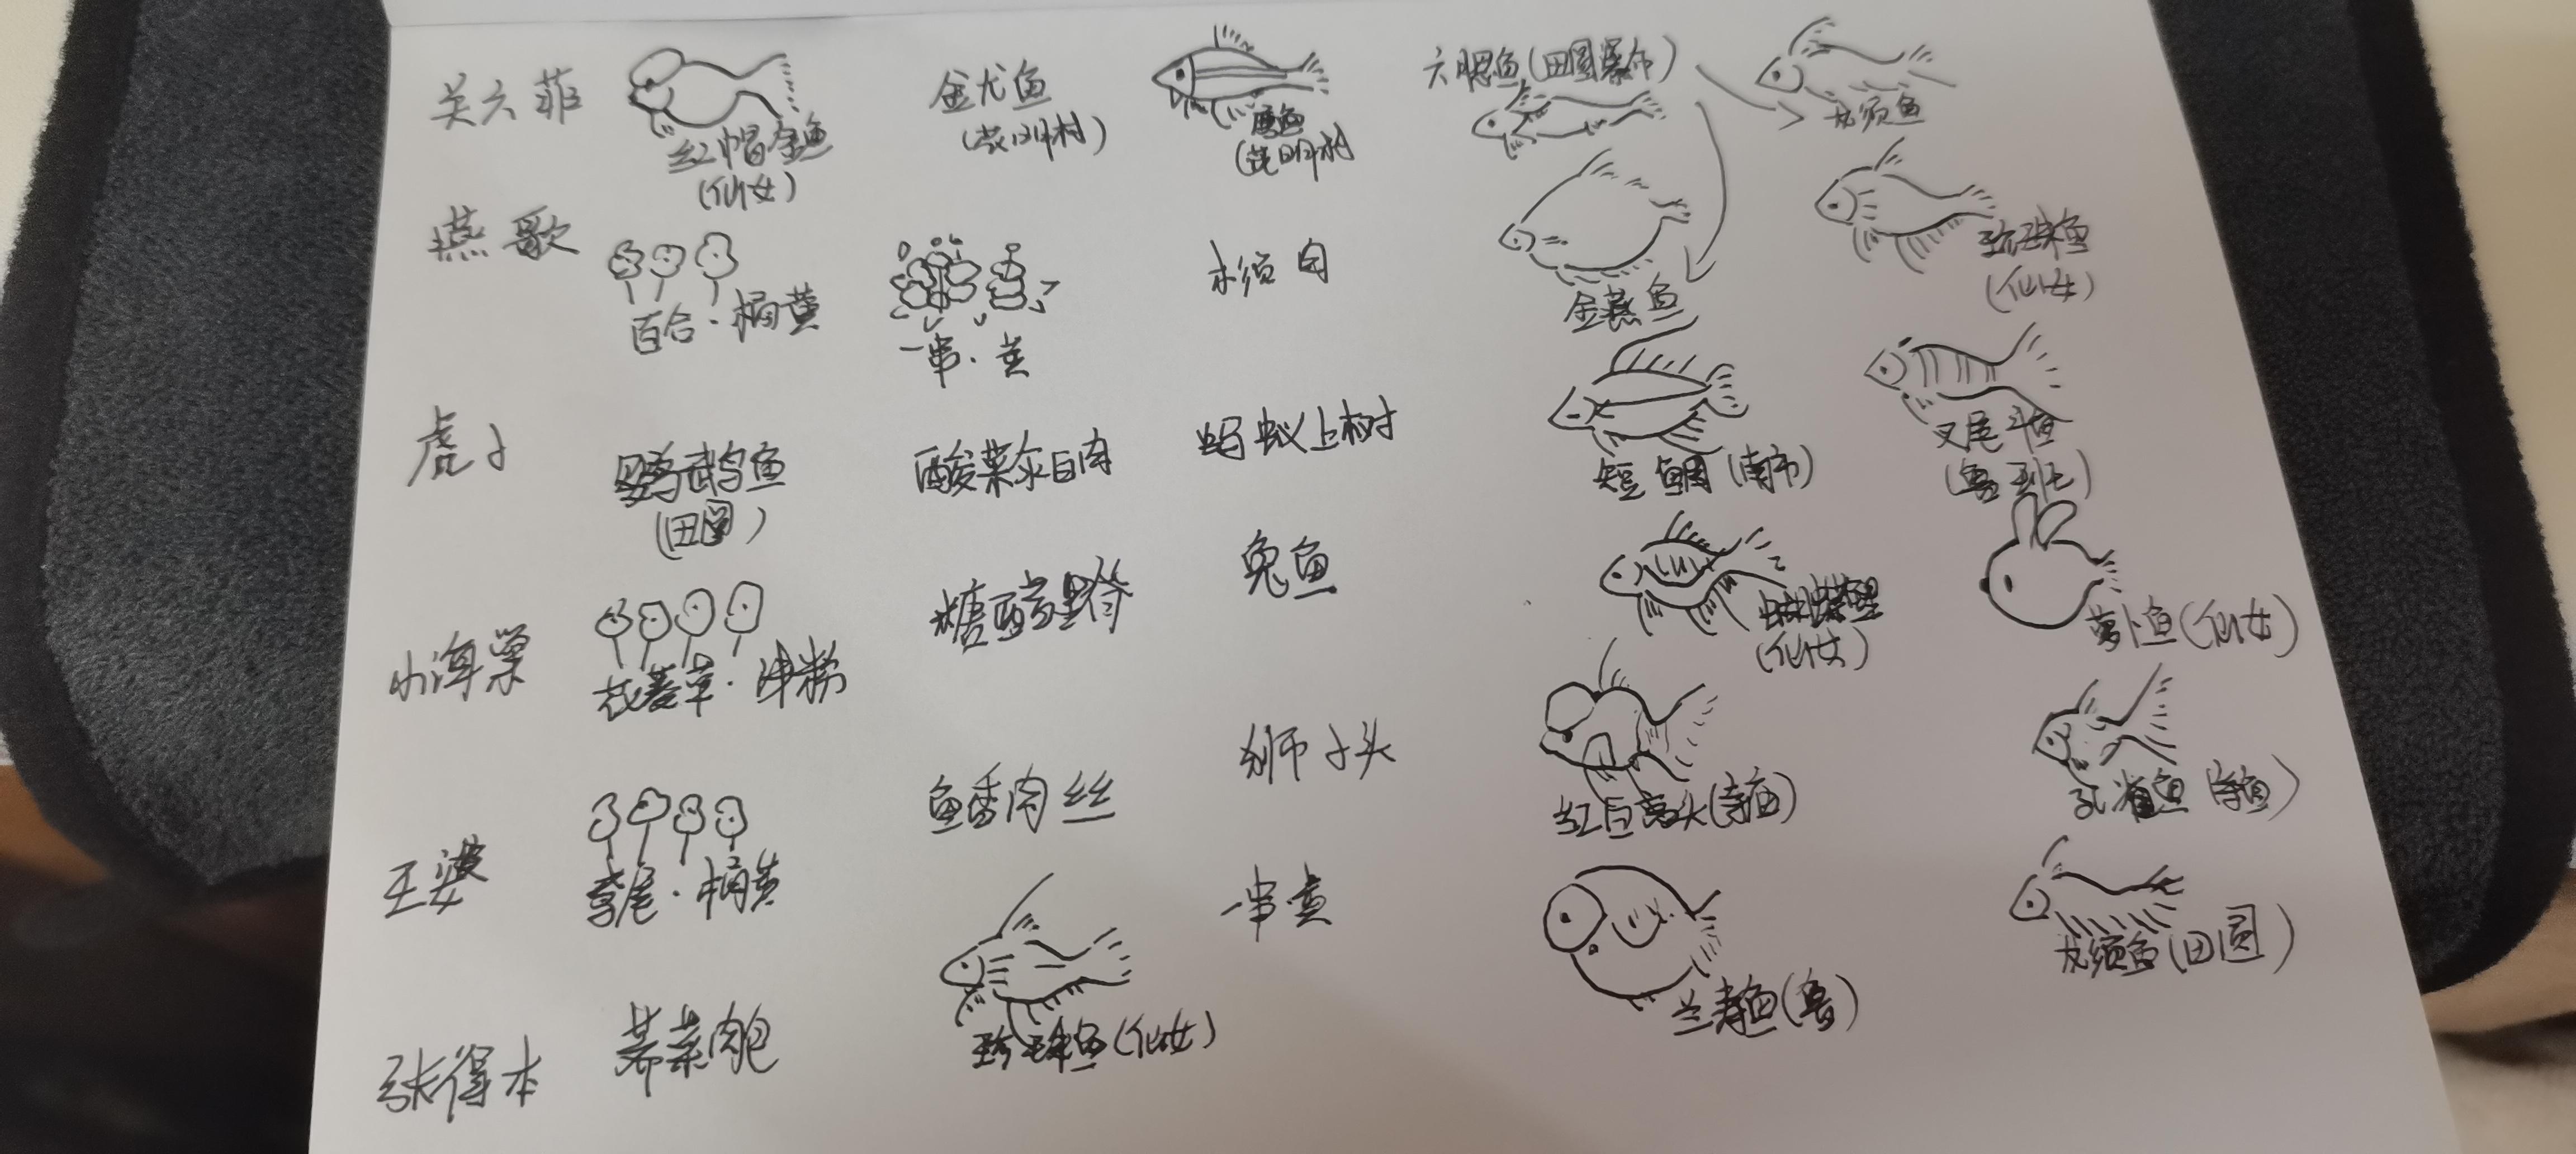 关六菲
红帽金鱼
(仙女)
金尤鱼
(茂明村)
(茂明村
六腮鱼(田圆瀑布)
龙须鱼
燕歌
百合·橘黄
一串·黄
木须肉
金燕鱼
珍珠鱼
(仙女)
虎子
鹦鹉鱼
(田圆)
酸菜汆白肉
蚂蚁上树
短鲷(南市)
叉尾斗鱼
小海棠
花菱草·津粉
糖醋里脊
兔鱼
蝴蝶鲤
(仙女)
萝卜鱼(仙女)
王婆
鸢尾·橘黄
鱼香肉丝
狮子头
红白高头(寺庙)
孔雀鱼
张得本
荠菜肉包
珍珠鱼(仙女)
一串黄
兰寿鱼(鲁)
龙须鱼(田圆)